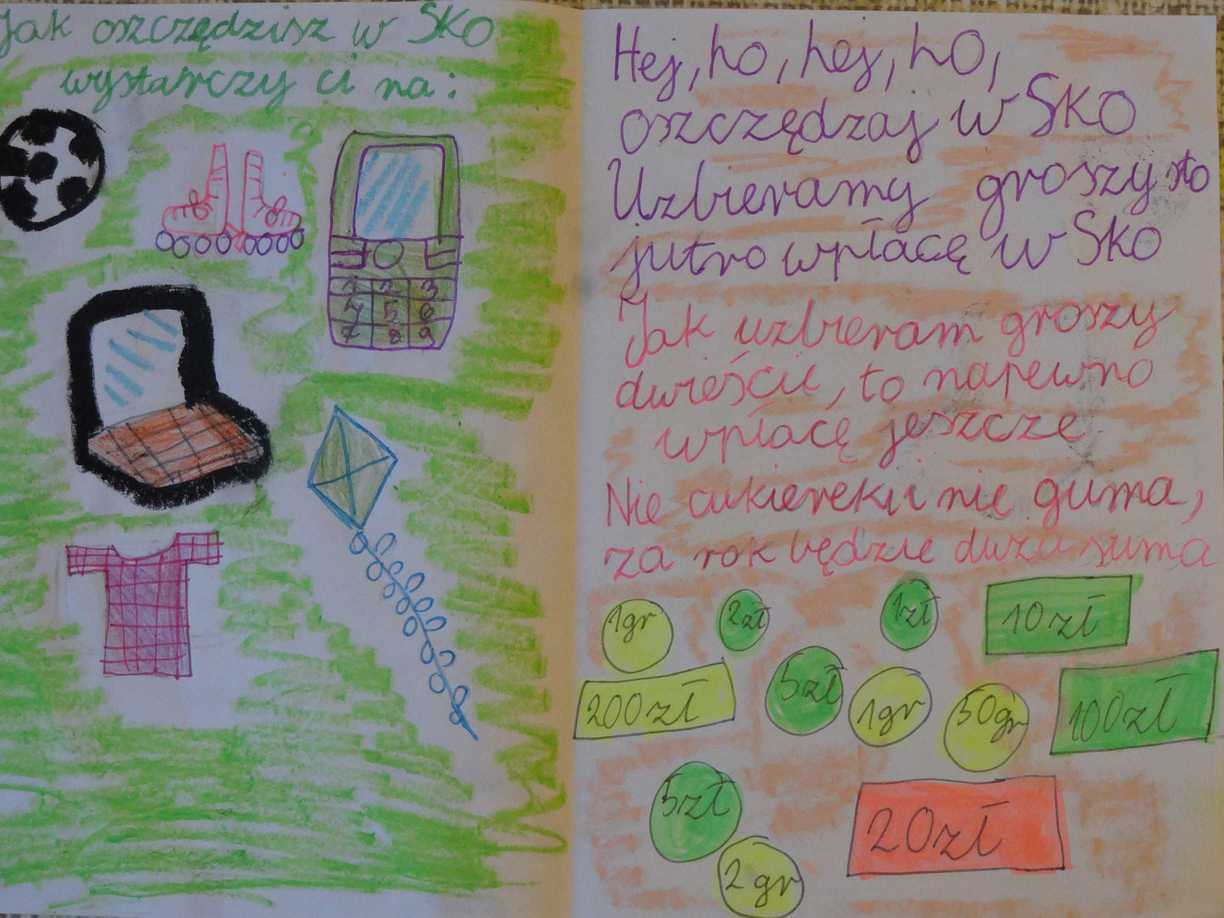 Jak oszczędzisz w SKO
wystarczy ci na:
1 2 3
4 5 6
7 8 9
Hej, ho, hej, hO,
oszczędzaj w SKO
Uzbieramy groszy sto
jutro wpłacę w SKO
Jak uzbieram groszy
dwieście, to napewno
wpłacę jeszcze
Nie cukiereki i nie guma,
za rok będzie duża suma
1gr 2zł 1zł 10zł
200zł 5zł 1gr 50gr 100zł
5zł 20zł
2gr